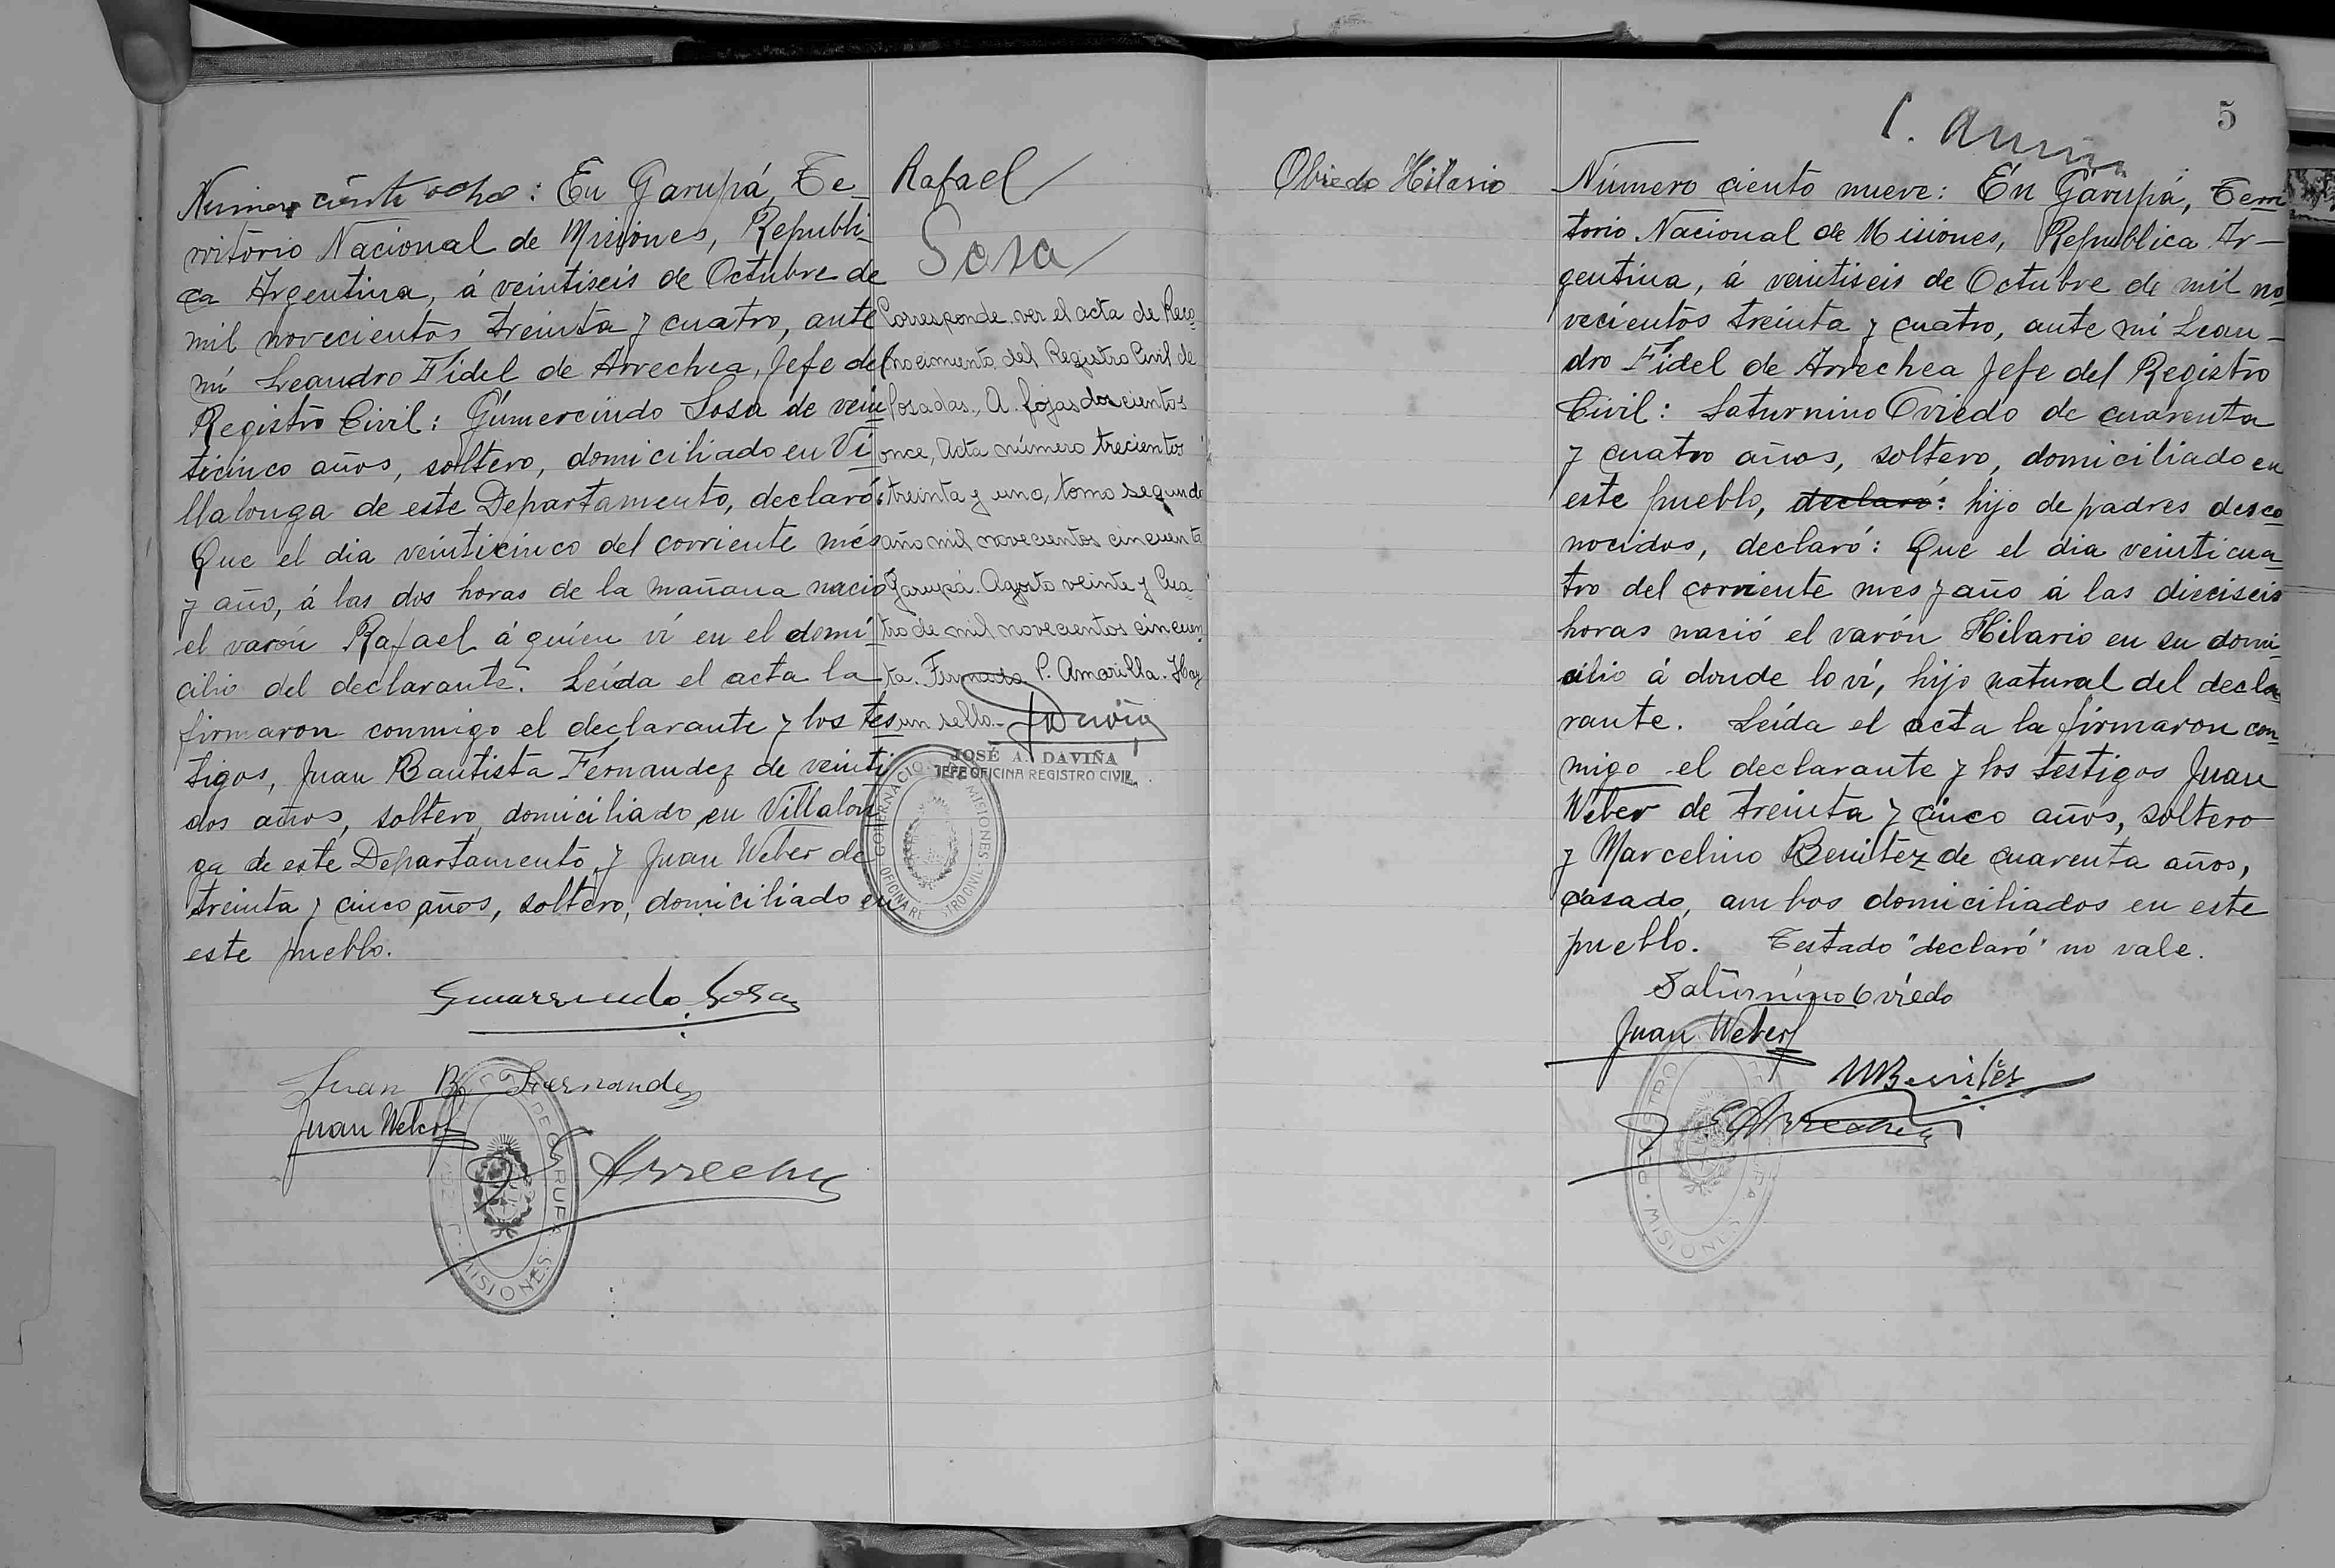 Número ciento ocho: En Garupá, Te-
rritorio Nacional de Misiones, Republi-
ca Argentina, á veintiseis de Octubre de
mil novecientos treinta y cuatro, ante
mí Leandro Fidel de Arrechea, Jefe del
Registro Civil: Gumercindo Sosa de vein
ticinco años, soltero, domiciliado en Vi
llalonga de este Departamento, declaró:
Que el dia veinticinco del corriente més
y año, á las dos horas de la mañana nació
el varón Rafael á quien ví en el domi
cilio del declarante. Leída el acta la
firmaron conmigo el declarante y los tes
tigos, Juan Bautista Fernandez de veinti
dos años, soltero, domiciliado en Villalon
ga de este Departamento y Juan Weber de
treinta y cinco años, soltero, domiciliado en
este pueblo.
Gumercindo Sosa
Juan B Fernandez
Juan Weber
Arrechea
DE GARUPA · MISIONES
Rafael
Sosa
Corresponde ver el acta de Reco-
nocimiento del Registro Civil de
Posadas, A. fojas doscientos
once, Acta número trecientos
treinta y uno, tomo segundo
año mil novecientos cincuenta
Garupá. Agosto veinte y Cua-
tro de mil novecientos cincuen
ta. Firmado P. Amarilla. Hay
un sello.-
JOSÉ A. DAVIÑA
JEFE OFICINA REGISTRO CIVIL
GOBERNACION MISIONES
OFICINA RE STRO CIVIL
5
Obiedo Hilario
Número ciento nueve: En Garupá, Terri
torio Nacional de Misiones, Republica Ar-
gentina, á veintiseis de Octubre de mil no
vecientos treinta y cuatro, ante mí Lean-
dro Fidel de Arrechea Jefe del Registro
Civil: Saturnino Oviedo de cuarenta
y cuatro años, soltero, domiciliado en
este pueblo, declaró: hijo de padres desco
nocidos, declaró: Que el dia veinticua-
tro del corriente mes y año á las dieciseis
horas nació el varón Hilario en su domi-
cilio á donde lo ví, hijo natural del decla
rante. Leída el acta la firmaron con-
migo el declarante y los testigos Juan
Weber de treinta y cinco años, soltero
y Marcelino Benitez de cuarenta años,
casado, ambos domiciliados en este
pueblo. Testado "declaró" no vale.
Saturnino Oviedo
Juan Weber
M Benites
Arrechea
REGISTRO MISIONES